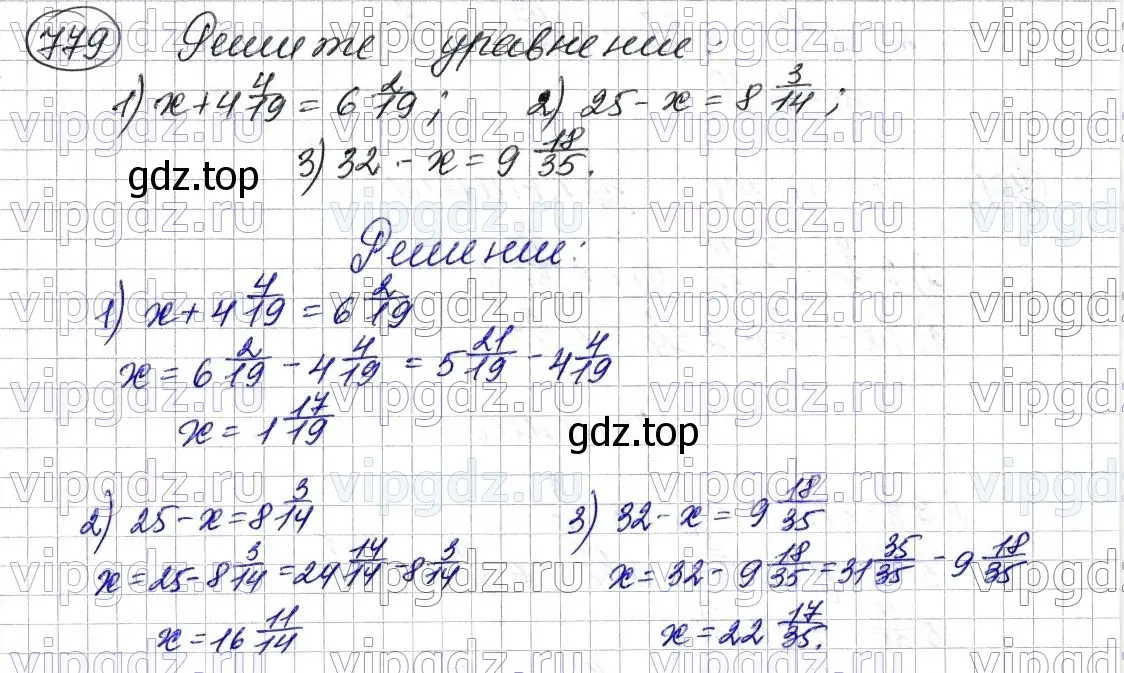 779 Решите уравнение:
1) x + 4 4/19 = 6 2/19; 2) 25 - x = 8 3/14;
3) 32 - x = 9 18/35.
gdz.top
Решение:
1) x + 4 4/19 = 6 2/19
x = 6 2/19 - 4 4/19 = 5 21/19 - 4 4/19
x = 1 17/19
gdz.top
2) 25 - x = 8 3/14
x = 25 - 8 3/14 = 24 14/14 - 8 3/14
x = 16 11/14
3) 32 - x = 9 18/35
x = 32 - 9 18/35 = 31 35/35 - 9 18/35
x = 22 17/35.
vipgdz.ru